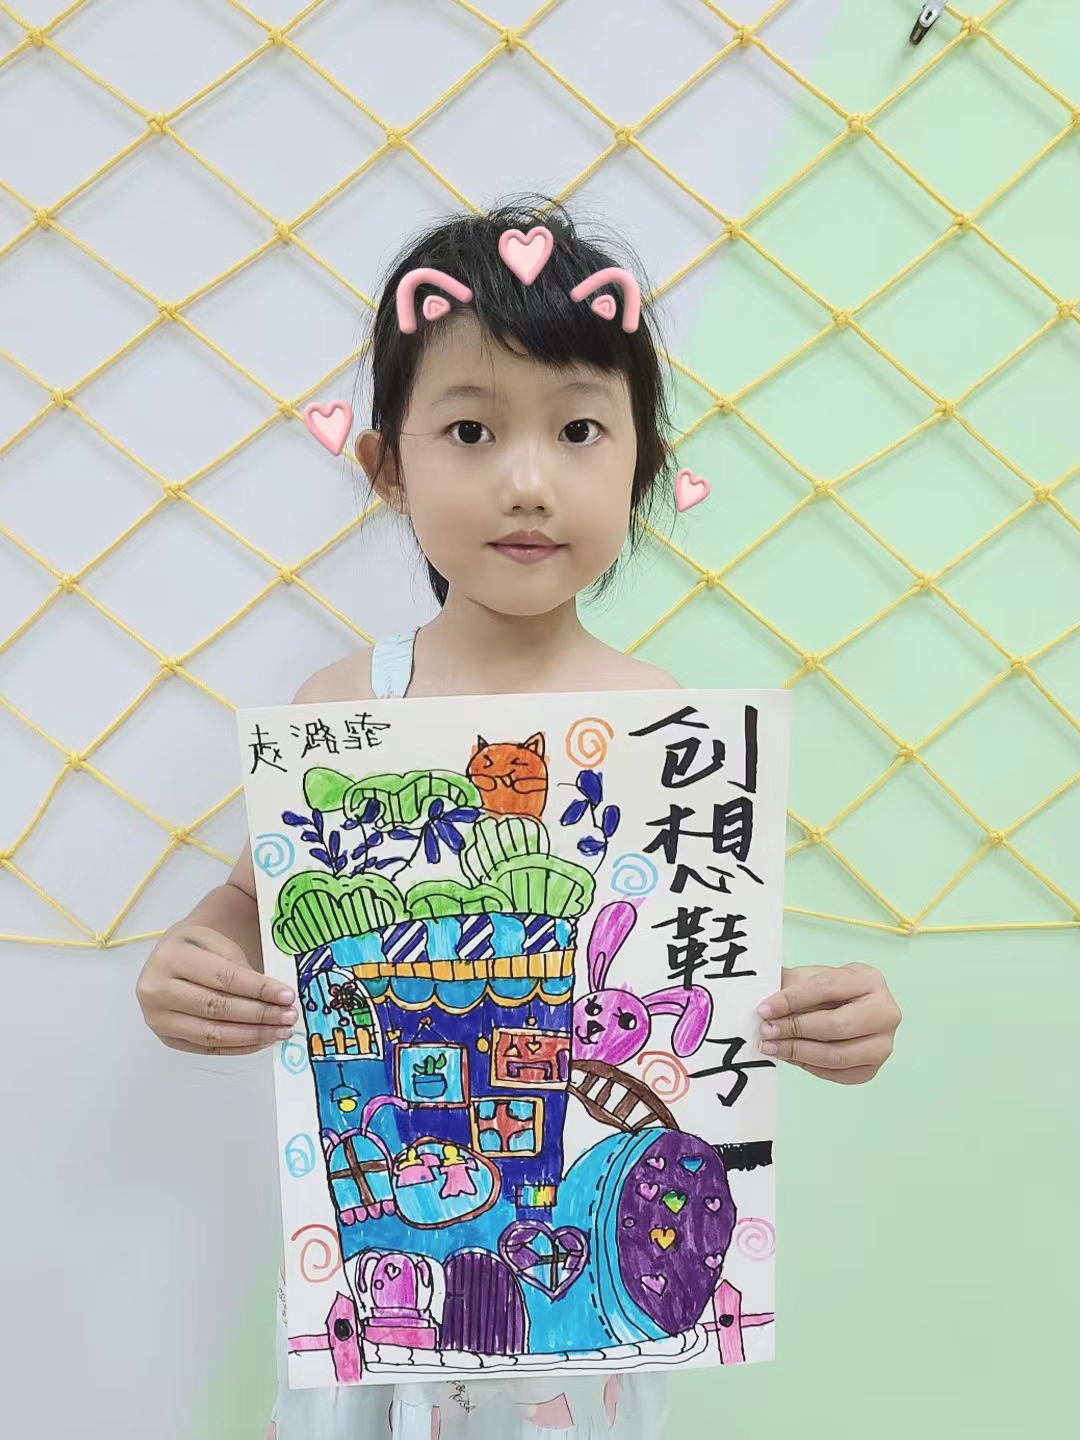 赵潞霏
创
想
鞋
子